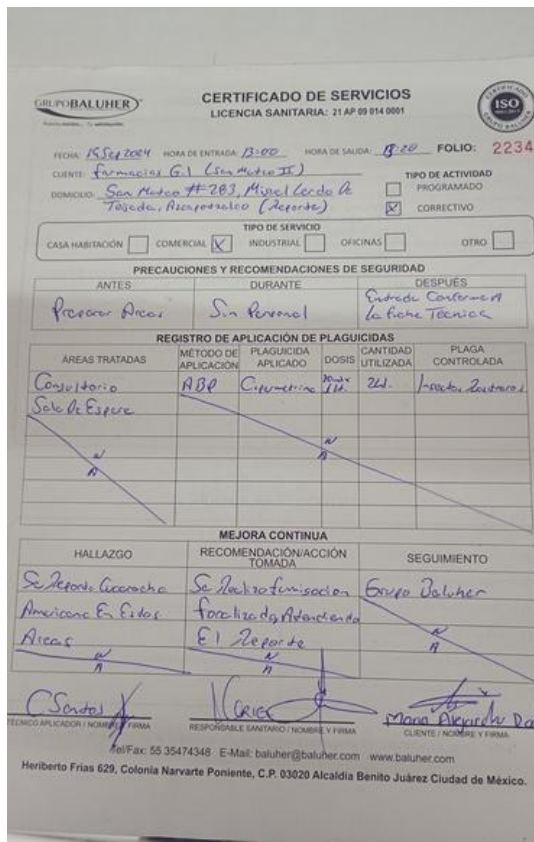 GRUPO BALUHER
CERTIFICADO DE SERVICIOS
LICENCIA SANITARIA: 21 AP 09 014 0001
CERTIFICADO
ISO
GRUPO BALUHER
FECHA: 15 Sep 2024 HORA DE ENTRADA: 13:00 HORA DE SALIDA: 13:20 FOLIO: 2234
CLIENTE: Farmacias G.I (San Mateo II)
DOMICILIO: San Mateo # 283, Miguel Lerdo De
Tejada, Azcapotzalco (Reporte)
TIPO DE ACTIVIDAD
PROGRAMADO
X CORRECTIVO
TIPO DE SERVICIO
CASA HABITACIÓN COMERCIAL X INDUSTRIAL OFICINAS OTRO
PRECAUCIONES Y RECOMENDACIONES DE SEGURIDAD
ANTES DURANTE DESPUÉS
Preparar Areas Sin Personal Entrada Conforme A
La ficha Tecnica
REGISTRO DE APLICACIÓN DE PLAGUICIDAS
ÁREAS TRATADAS MÉTODO DE APLICACIÓN PLAGUICIDA APLICADO DOSIS CANTIDAD UTILIZADA PLAGA CONTROLADA
Consultorio ABP 2Lt. Insectos Rastreros
Sala De Espera
N A
N A
MEJORA CONTINUA
HALLAZGO RECOMENDACIÓN/ACCIÓN TOMADA SEGUIMIENTO
Se Reporta Cucaracha Se Realizo fumigacion Grupo Baluher
Americana En Estas focalizada Atendiendo
Areas El Reporte
N A N A N A
C Santos
TÉCNICO APLICADOR / NOMBRE Y FIRMA RESPONSABLE SANITARIO / NOMBRE Y FIRMA CLIENTE / NOMBRE Y FIRMA
Tel/Fax: 55 35474348 E-Mail: baluher@baluher.com www.baluher.com
Heriberto Frias 629, Colonia Narvarte Poniente, C.P. 03020 Alcaldía Benito Juárez Ciudad de México.